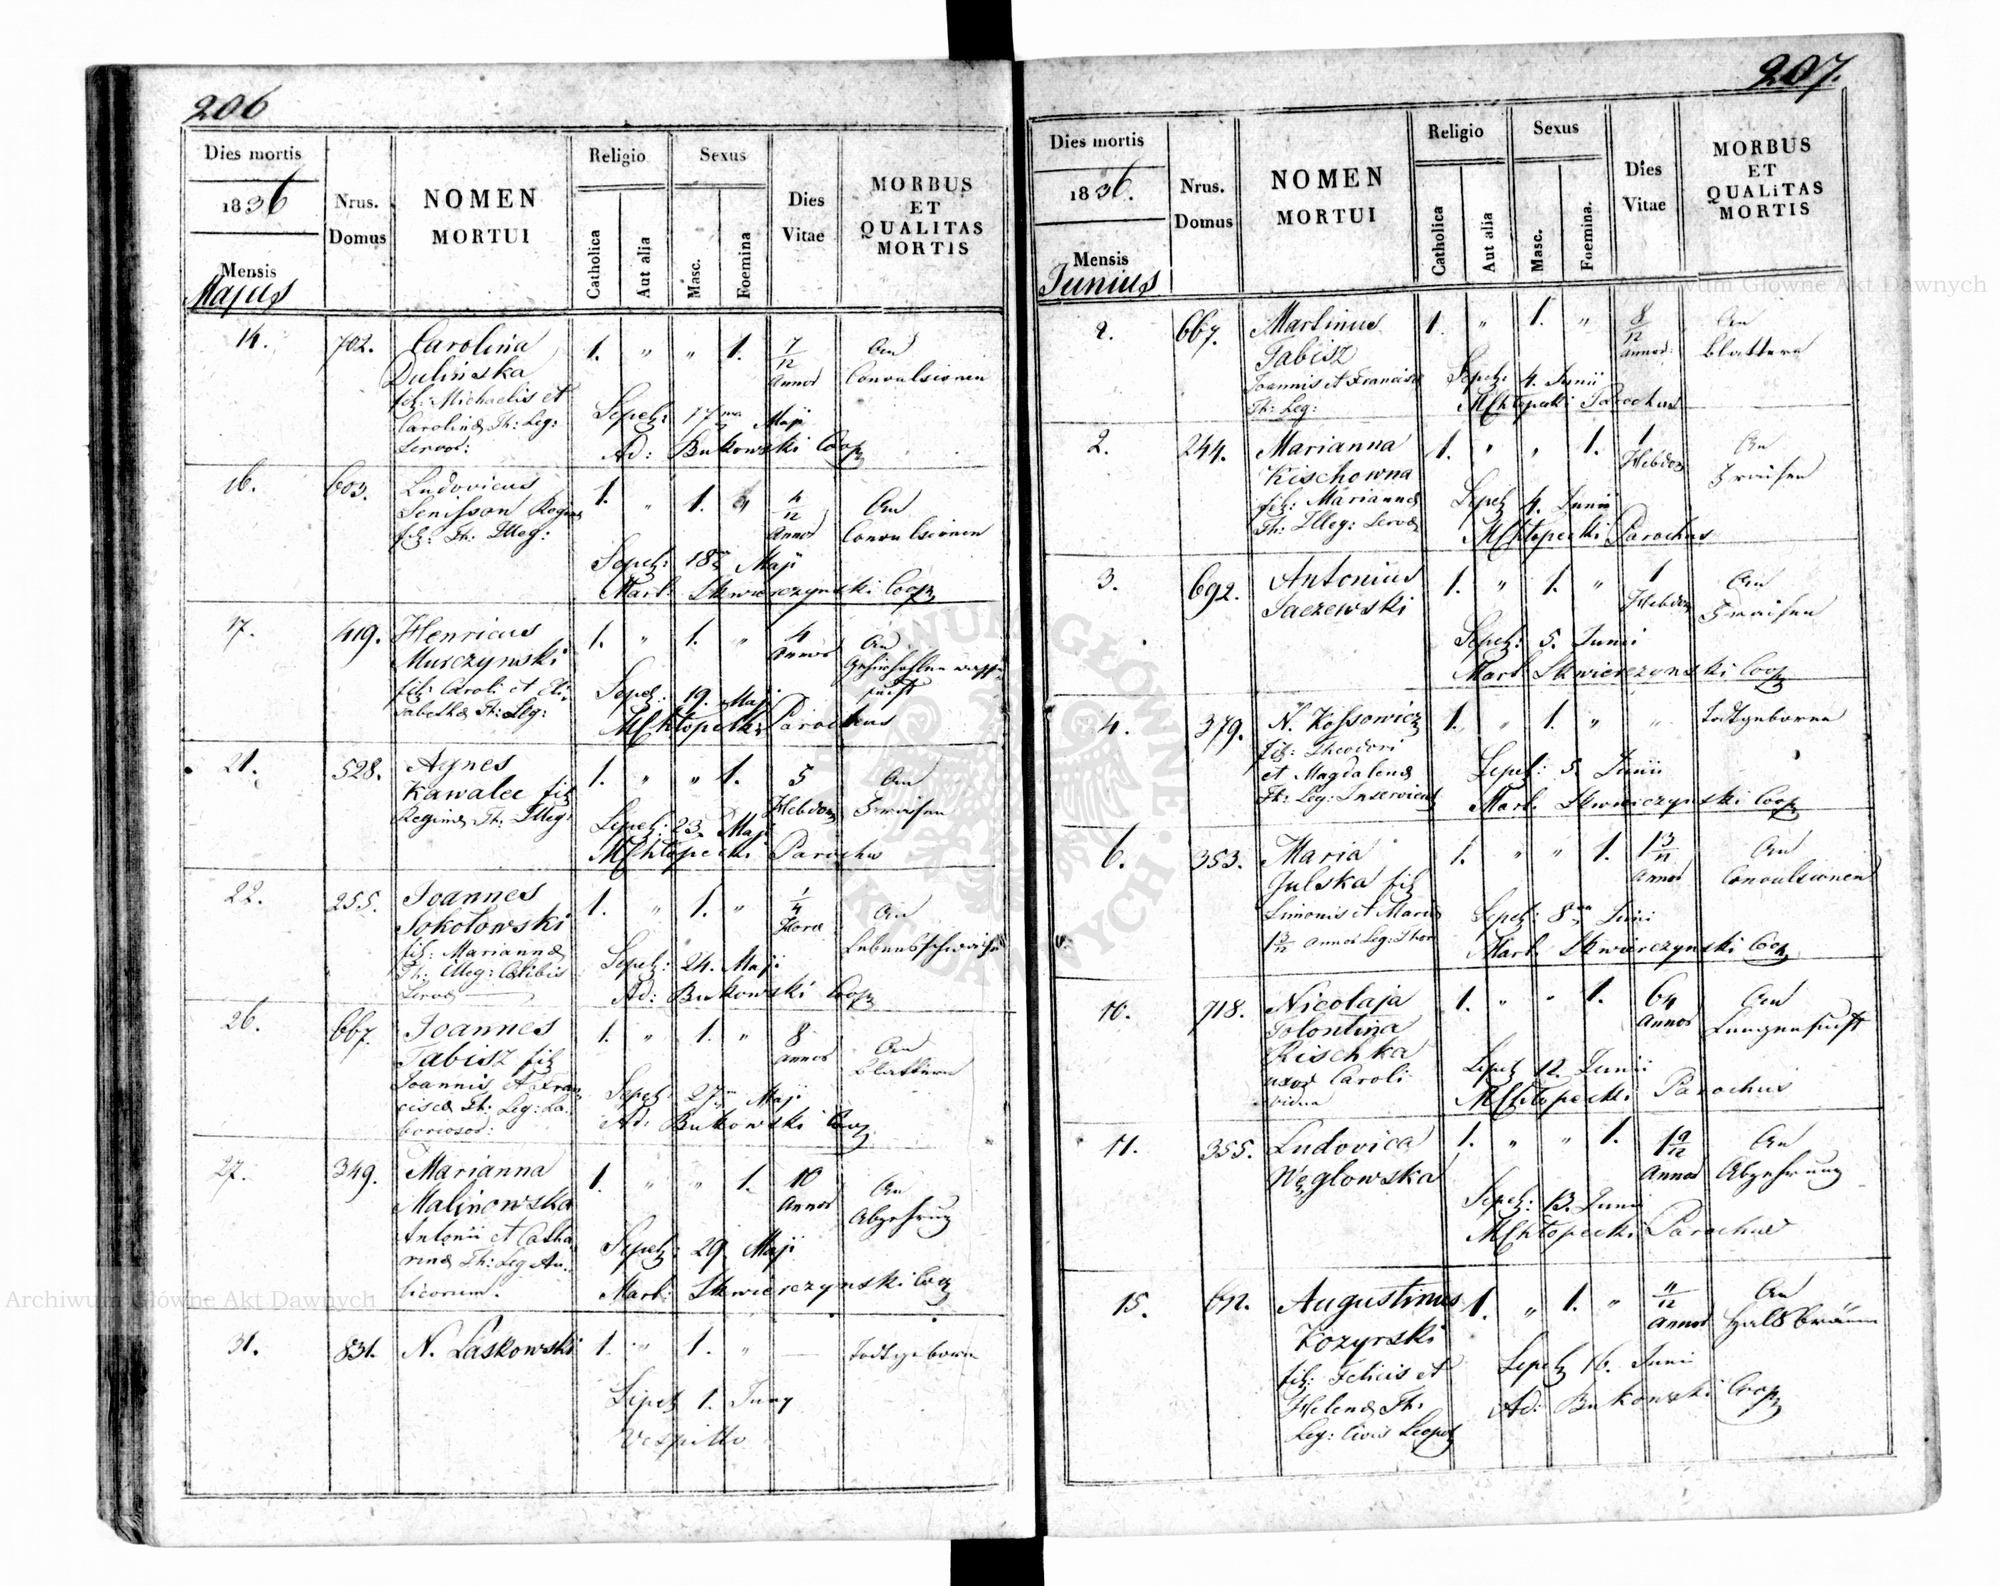 206
Dies mortis
1836
Mensis
Majus
Nrus.
Domus
NOMEN
MORTUI
Religio
Catholica
Aut alia
Sexus
Masc.
Foemina
Dies
Vitae
MORBUS
ET
QUALITAS
MORTIS
14. 702. Carolina 1. " " 1. 7/12 An
Dulińska Annor Convulsionen
fil: Michaelis et
Carolinae Th: Leg: Sepel: 17ma Maji
Servor: Ad: Bukowski Coop
16. 603. Ludovicus 1. " 1. " 4/12 An
Senisson Regina Annor Convulsionen
fil: Th: Illeg:
Sepel: 18 Maji
Marl Skwierczynski Coop
17. 419. Henricus 1. " 1. " 4 An
Murczynski Annor
fil: Caroli et Eli- Sepel: 19. Maji
sabethae Th: Leg: MChłopecki Parochus
21. 528. Agnes 1. " " 1. 5 An
Kawalec fil Hebdom Fraisen
Reginae Th: Illeg: Sepel: 23. Maji
MChłopecki Parochus
22. 255. Joannes 1. " 1. " 1/4 An
Sokołowski Hora Lebensschwäche
fil: Mariannae Sepel: 24. Maji
Th: Illeg: Caelibis
Servae Ad: Bukowski Coop
26. 667. Joannes 1. " 1. " 8 An
Tabisz fil Annor Blattern
Joannis et Fran Sepel: 27 Maji
ciscae Th: Leg: La- Ad: Bukowski Coop
boriosor:
27. 349. Marianna 1. " " 1. 10 An
Malinowska Annor Abzehrung
Antonii et Catha Sepel: 29. Maji
rinae Th: Leg Au-
licorum. Marl: Skwierczynski Coop
31. 831. N. Laskowski 1. " 1. " — Todtgeboren
Sepel 1. Juny
Vespillo
207.
Dies mortis
1836.
Mensis
Junius
Nrus.
Domus
NOMEN
MORTUI
Religio
Catholica
Aut alia
Sexus
Masc.
Foemina.
Dies
Vitae
MORBUS
ET
QUALiTAS
MORTIS
2. 667. Martinus 1. " 1. " 8/12 An
Tabisz Annor: Blattern
Joannis et Francisca Sepel: 4. Junii
Th: Leg: MChłopecki Parochus
2. 244. Marianna 1. " " 1. 1 An
Kischowna Hebdom Fraisen
fil: Mariannae Sepel 4. Junii
Th: Illeg: Servae MChłopecki Parochus
3. 692. Antonius 1. " 1. " 1 An
Jaczewski Hebdom Fraisen
Sepel: 5. Junii
Marl Skwierczynski Coop
4. 379. N. Kossowicz 1. " 1. " " Todtgeboren
fil: Theodori
et Magdalenae Sepel: 5. Junii
Th: Leg: Inservient Marl. Skwierczynski Coop
6. 353. Maria 1. " " 1. 1 3/12 An
Julska fil Annor Convulsionen
Simonis et Maria Sepel: 8va Juni
1 3/12 Annor Leg: Thor Marl. Skwierczynski Coop
10. 718. Nicolaja 1. " " 1. 64 An
Annor Lungensucht
Kischka
uxor Caroli Sepel 12. Junii
vidua MChłopecki Parochus
11. 355. Ludovica 1. " " 1. 1 9/12 An
Węglowska Annor Abzehrung
Sepel: 13. Junii
MChłopecki Parochus
15. 692. Augustinus 1. " 1. " 11/12 An
Kozyrski Annor Halsbräune
fil: Felicis et Sepel 16. Junii
Helenae Th: Ad: Bukowski Coop
Leg: Civis Leopol
Archiwum Główne Akt Dawnych
Archiwum Główne Akt Dawnych
ARCHIWUM GŁÓWNE AKT DAWNYCH